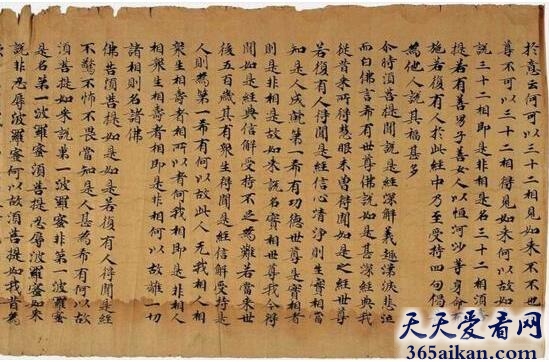 於意云何可以三十二相見如来不不也世
尊不可以三十二相得見如来何以故如来
說三十二相即是非相是名三十二相須菩
提若有善男子善女人以恒河沙等身命布
施若復有人於此經中乃至受持四句偈
為他人說其福甚多
尒時須菩提聞說是經深解義趣涕淚悲泣
而白佛言希有世尊佛說如是甚深經典我
從昔来所得慧眼未曾得聞如是之經世尊
若復有人得聞是經信心清淨則生實相當
知是人成就第一希有功德世尊是實相者
則是非相是故如来說名實相世尊我今得
聞如是經典信解受持不足為難若當来世
後五百歲其有衆生得聞是經信解受持是
人則為第一希有何以故此人无我相人相
衆生相壽者相所以者何我相即是非相人
相衆生相壽者相即是非相何以故離一切
諸相則名諸佛
佛告須菩提如是如是若復有人得聞是經
不驚不怖不畏當知是人甚為希有何以故
須菩提如来說第一波羅蜜非第一波羅蜜
是名第一波羅蜜須菩提忍辱波羅蜜如来
說非忍辱波羅蜜何以故須菩提如我昔為
天天爱看网
365aikan.com